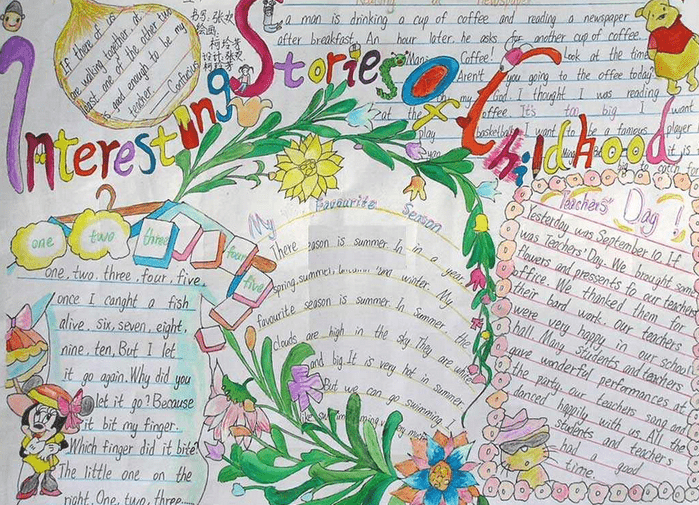 Interesting Stories of Childhood
If there are
are walking together, at
least one of the other two
is good enough to be my
teacher.
Confucius
书写:张
绘画:
柯玲芳
设计:张
柯玲芳
Reading a Newspaper
a man is drinking a cup of coffee and reading a newspaper
after breakfast. An hour later, he asks for another cup of coffee.
Coffee! Look at the time
Aren't you going to the office today
my God. I thought I was reading
at the office. It's too big I want
play basketball. I want to be a famous player
one
two
three
four
five
one, two, three, four, five,
once I canght a fish
alive, six, seven, eight,
nine, ten, But I let
it go again. Why did you
let it go? Because
it bit my finger.
Which finger did it bite
The little one on the
right. One, two, three......
My Favourite Season
There season is summer. In in a year,
spring, summer, and winter. My
favourite season is summer. In summer, the
clouds are high in the sky. They are white
and big. It is very hot in summer.
But we can go swimming. I
like summer very much
Teachers' Day!
Yesterday was September 10. If
was Teachers' Day. We brought some
flowers and pressents fo our teachers'
office. We thanked them for
their bard work. Our teachers
were very happy in our school
hall. Many students and teachers
gave wonderful performances at
the party. Our teachers song and
danced happily with us. All the
students and teachers
had a good
time.